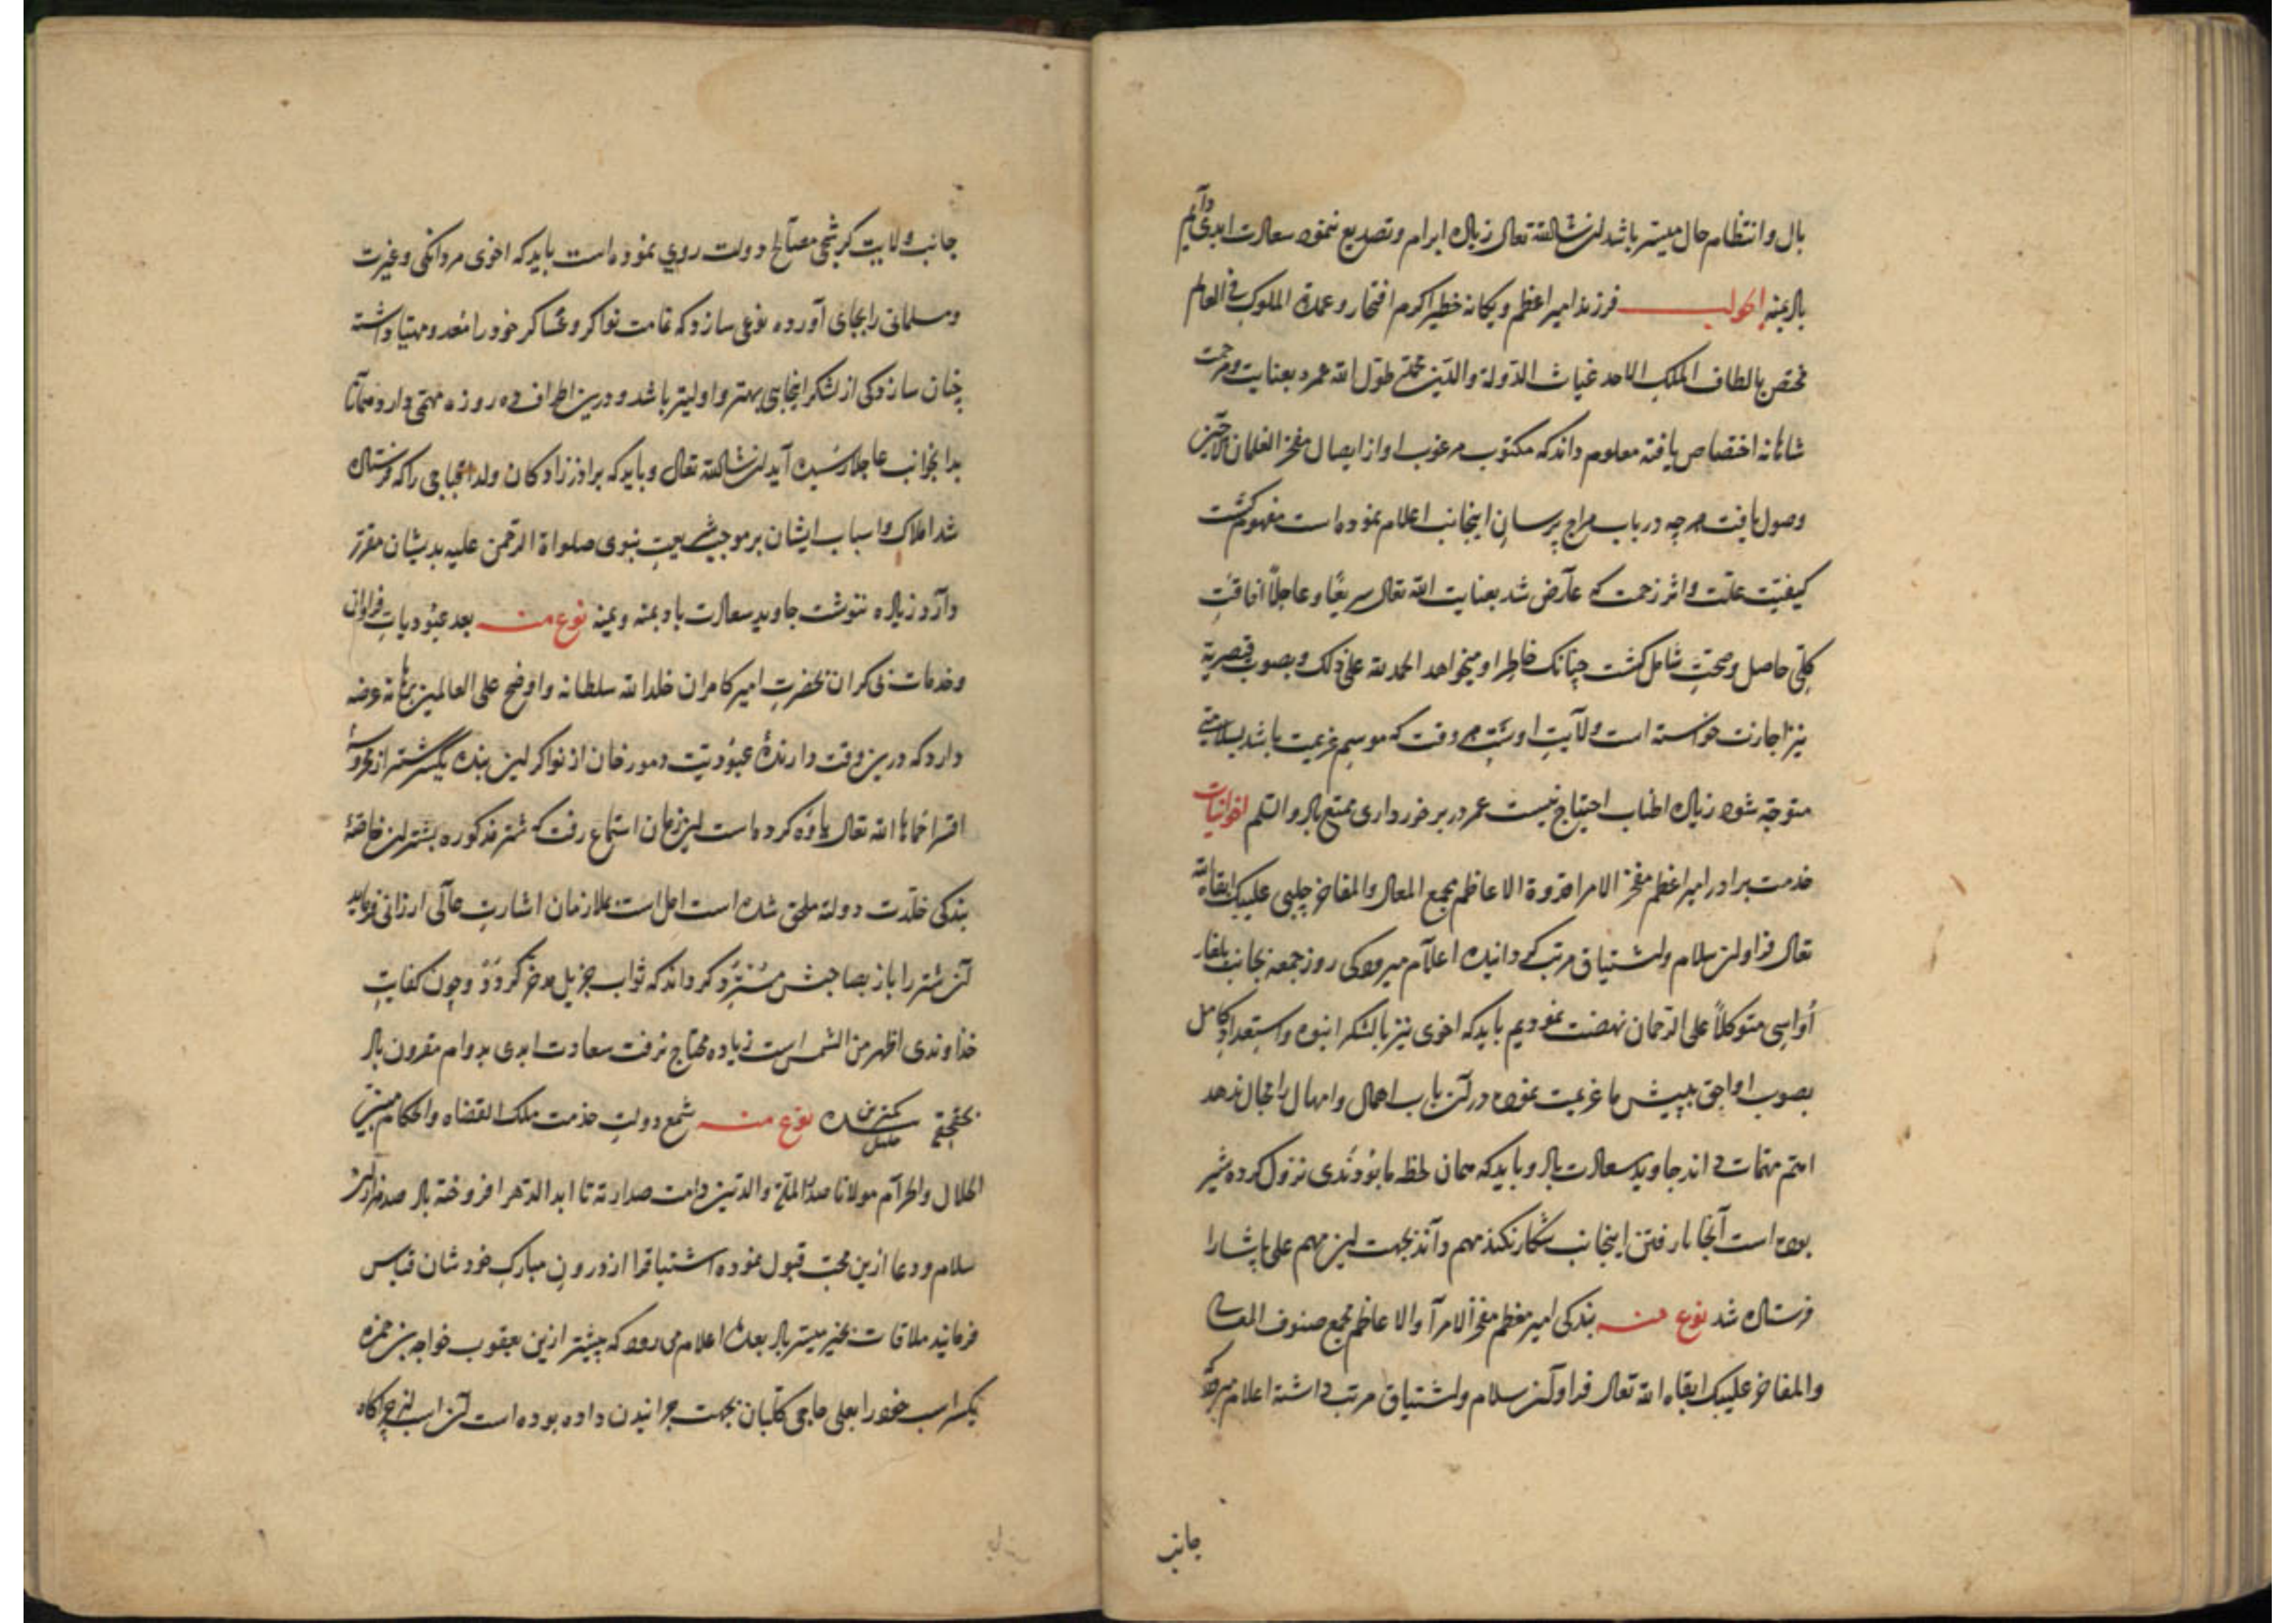 بال وانتظام حال میسر باشد ان شاالله تعالی زیاده ابرام وتصدیع ننموده سعادت ابدی دایم
باد بمنه الجواب فرزند امیر اعظم ویکانه خطیر اکرم افتخار وعمدة الملوک فی العالم
مختص بالطاف الملک الاحد غیاث الدولة والدین محمد طول الله عمره بعنایت ومرحمت
شاهانه اختصاص یافته معلوم داند که مکتوب مرغوب او از ایصال مفخر الغلمان
وصول یافت هرچه در باب مزاج پرسان اینجانب اعلام نموده است مفهوم کشت
کیفیت علت واثر زحمت که عارض شد بعنایت الله تعالی سریعًا وعاجلاً افاقت
کلی حاصل وصحت شامل کشت چنانک خاطر او میخواهد الحمدلله علی ذلک وبصوب قیصریه
نیز اجازت خواسته است ولایت اوست هر وقت که موسم عزیمت باشد بسلامتی
متوجه شود زیاده اطناب احتیاج نیست عمر در برخورداری ممتع باد والسلم اخوانیات
خدمت برادر امیر اعظم مفخر الامرا قدوة الاعاظم مجمع المعالی والمفاخر چلبی علیبک ابقاه الله
تعالی فراوان سلام واشتیاق مرتب کردانیده اعلام میرود کی روز جمعه بجانب
متوکلاً علی الرحمان نهضت نمودیم باید که اخوی نیز با لشکر انبوه واستعداد کامل
بصوب پیش ما عزیمت نموده در آن باب اهمال وامهال را مجال ندهد
اهم مهمات داند جاوید سعادت باد وباید که همان لحظه نزول کرده
بوده است آنجا تا رفتن اینجانب نکند مهم داند بجهت این مهم علی پاشا را
فرستاده شد نوع منه بندکی امیر معظم مفخر الامرآ والاعاظم مجمع صنوف المعالی
والمفاخر علیبک ابقاه الله تعالی فراوان سلام واشتیاق مرتب داشته اعلام میرود که
جانب
جانب ولایت مصالح دولت روی نموده است باید که اخوی مردانکی وغیرت
ومسلمانی را بجای آورده نوعی سازد که غامت نواکر وعساکر خود را معد ومهیا داشته
چنان سازد کی از لشکر اینجایی بهتر واولیتر باشد ودرین اطراف ده روزه مهمی دارد
بدانجوانب عاجلا رسیده آید ان شاالله تعالی وباید که برادر زادکان ولد را که فرستاده
شد املاک واسباب ایشان بر موجب شریعت نبوی صلواة الرحمن علیه بدیشان مقرر
دارد زیاده ننوشت جاوید سعادت باد بمنه ویمنه نوع منه بعد عبودیات فراوان
وخدمات بی کران بحضرت امیر کامران خلد الله سلطانه واوضح علی العالمین برهانه عرضه
دارد که درین وقت دارندۀ عبودیت دمورخان از نواکر این بنده یکسر شتر از محروسۀ
اقسرا حماها الله تعالی یاوه کرده است این زمان استماع رفت که شتر مذکوره بشتران خاصۀ
بندکی خلدت دولته ملحق شده است امل است بملازمان اشارت عالی ارزانی فرماید
آن شتر را باز بصاحبش مسترد کرداند که ثواب جزیل مدخر کردد وچون کفایت
خداوندی اظهر من الشمس است زیاده محتاج نرفت سعادت ابدی بدوام مقرون باد
بحقه کمترین بنده خلیل نوع منه شمع دولت خدمت ملک القضاه والحکام مبین
الحلال والحرام مولانا صدر الملة والدین دامت صدارته تا ابد الدهر افروخته باد صد هزاران
سلام ودعا ازین محب قبول نموده اشتیاق را از درون مبارک خودشان قیاس
فرمایند ملاقات بخیر میسر باد بعده اعلام می رود که پیشتر ازین یعقوب خواجه بن حمزه
یکسر اسب خود را بعلی حاجی بجهت چرانیدن داده بوده است آن اسب از چراکاه